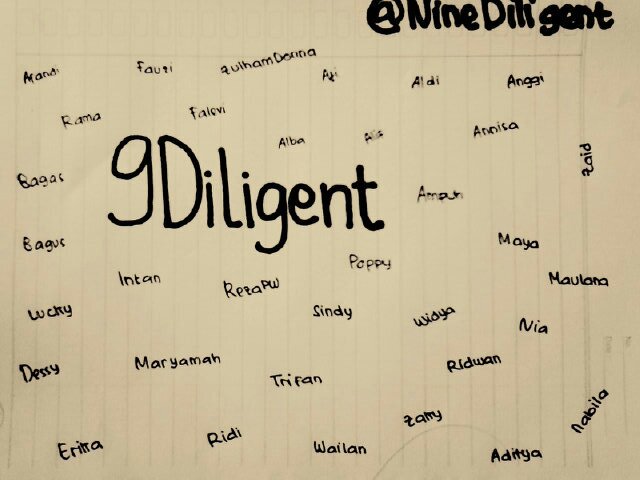 @NineDiligent
Fauzi
Zulham Dorina
Aldi
Anggi
Rama
Falevi
Alba
Annisa
Zaid
Bagas
9Diligent
Bagus
Maya
Intan
RezaPW
Poppy
Maulana
Lucky
Sindy
Widya
Nia
Dessy
Maryamah
Trifan
Ridwan
Zarry
Nabila
Erika
Ridi
Wailan
Aditya